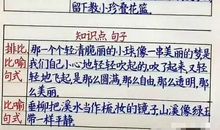 留下教小珍叠花篮。
知识点 句子
排比 那一个个轻清脆丽的小球,像一串美丽的梦是
比喻 我们自己小心地轻轻吹起的,吹了起来又轻
句式 轻地飞起,是那么圆满,那么自由,那么透明,那么
美丽。
比喻 垂柳把溪水当作梳妆的镜子,山溪像绿玉
句式 带一样平静。